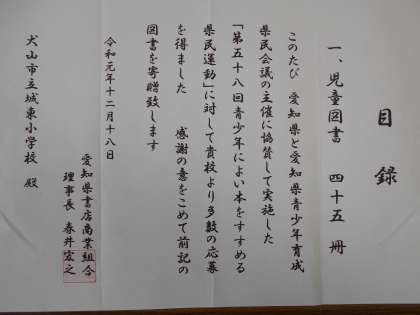 目録
一、児童図書 四十五冊
このたび 愛知県と愛知県青少年育成
県民会議の主催に協賛して実施した
「第五十八回青少年によい本をすすめる
県民運動」に対して貴校より多数の応募
を得ました 感謝の意をこめて前記の
図書を寄贈致します
令和元年十二月十八日
愛知県書店商業組合
理事長 春井宏之
犬山市立城東小学校 殿